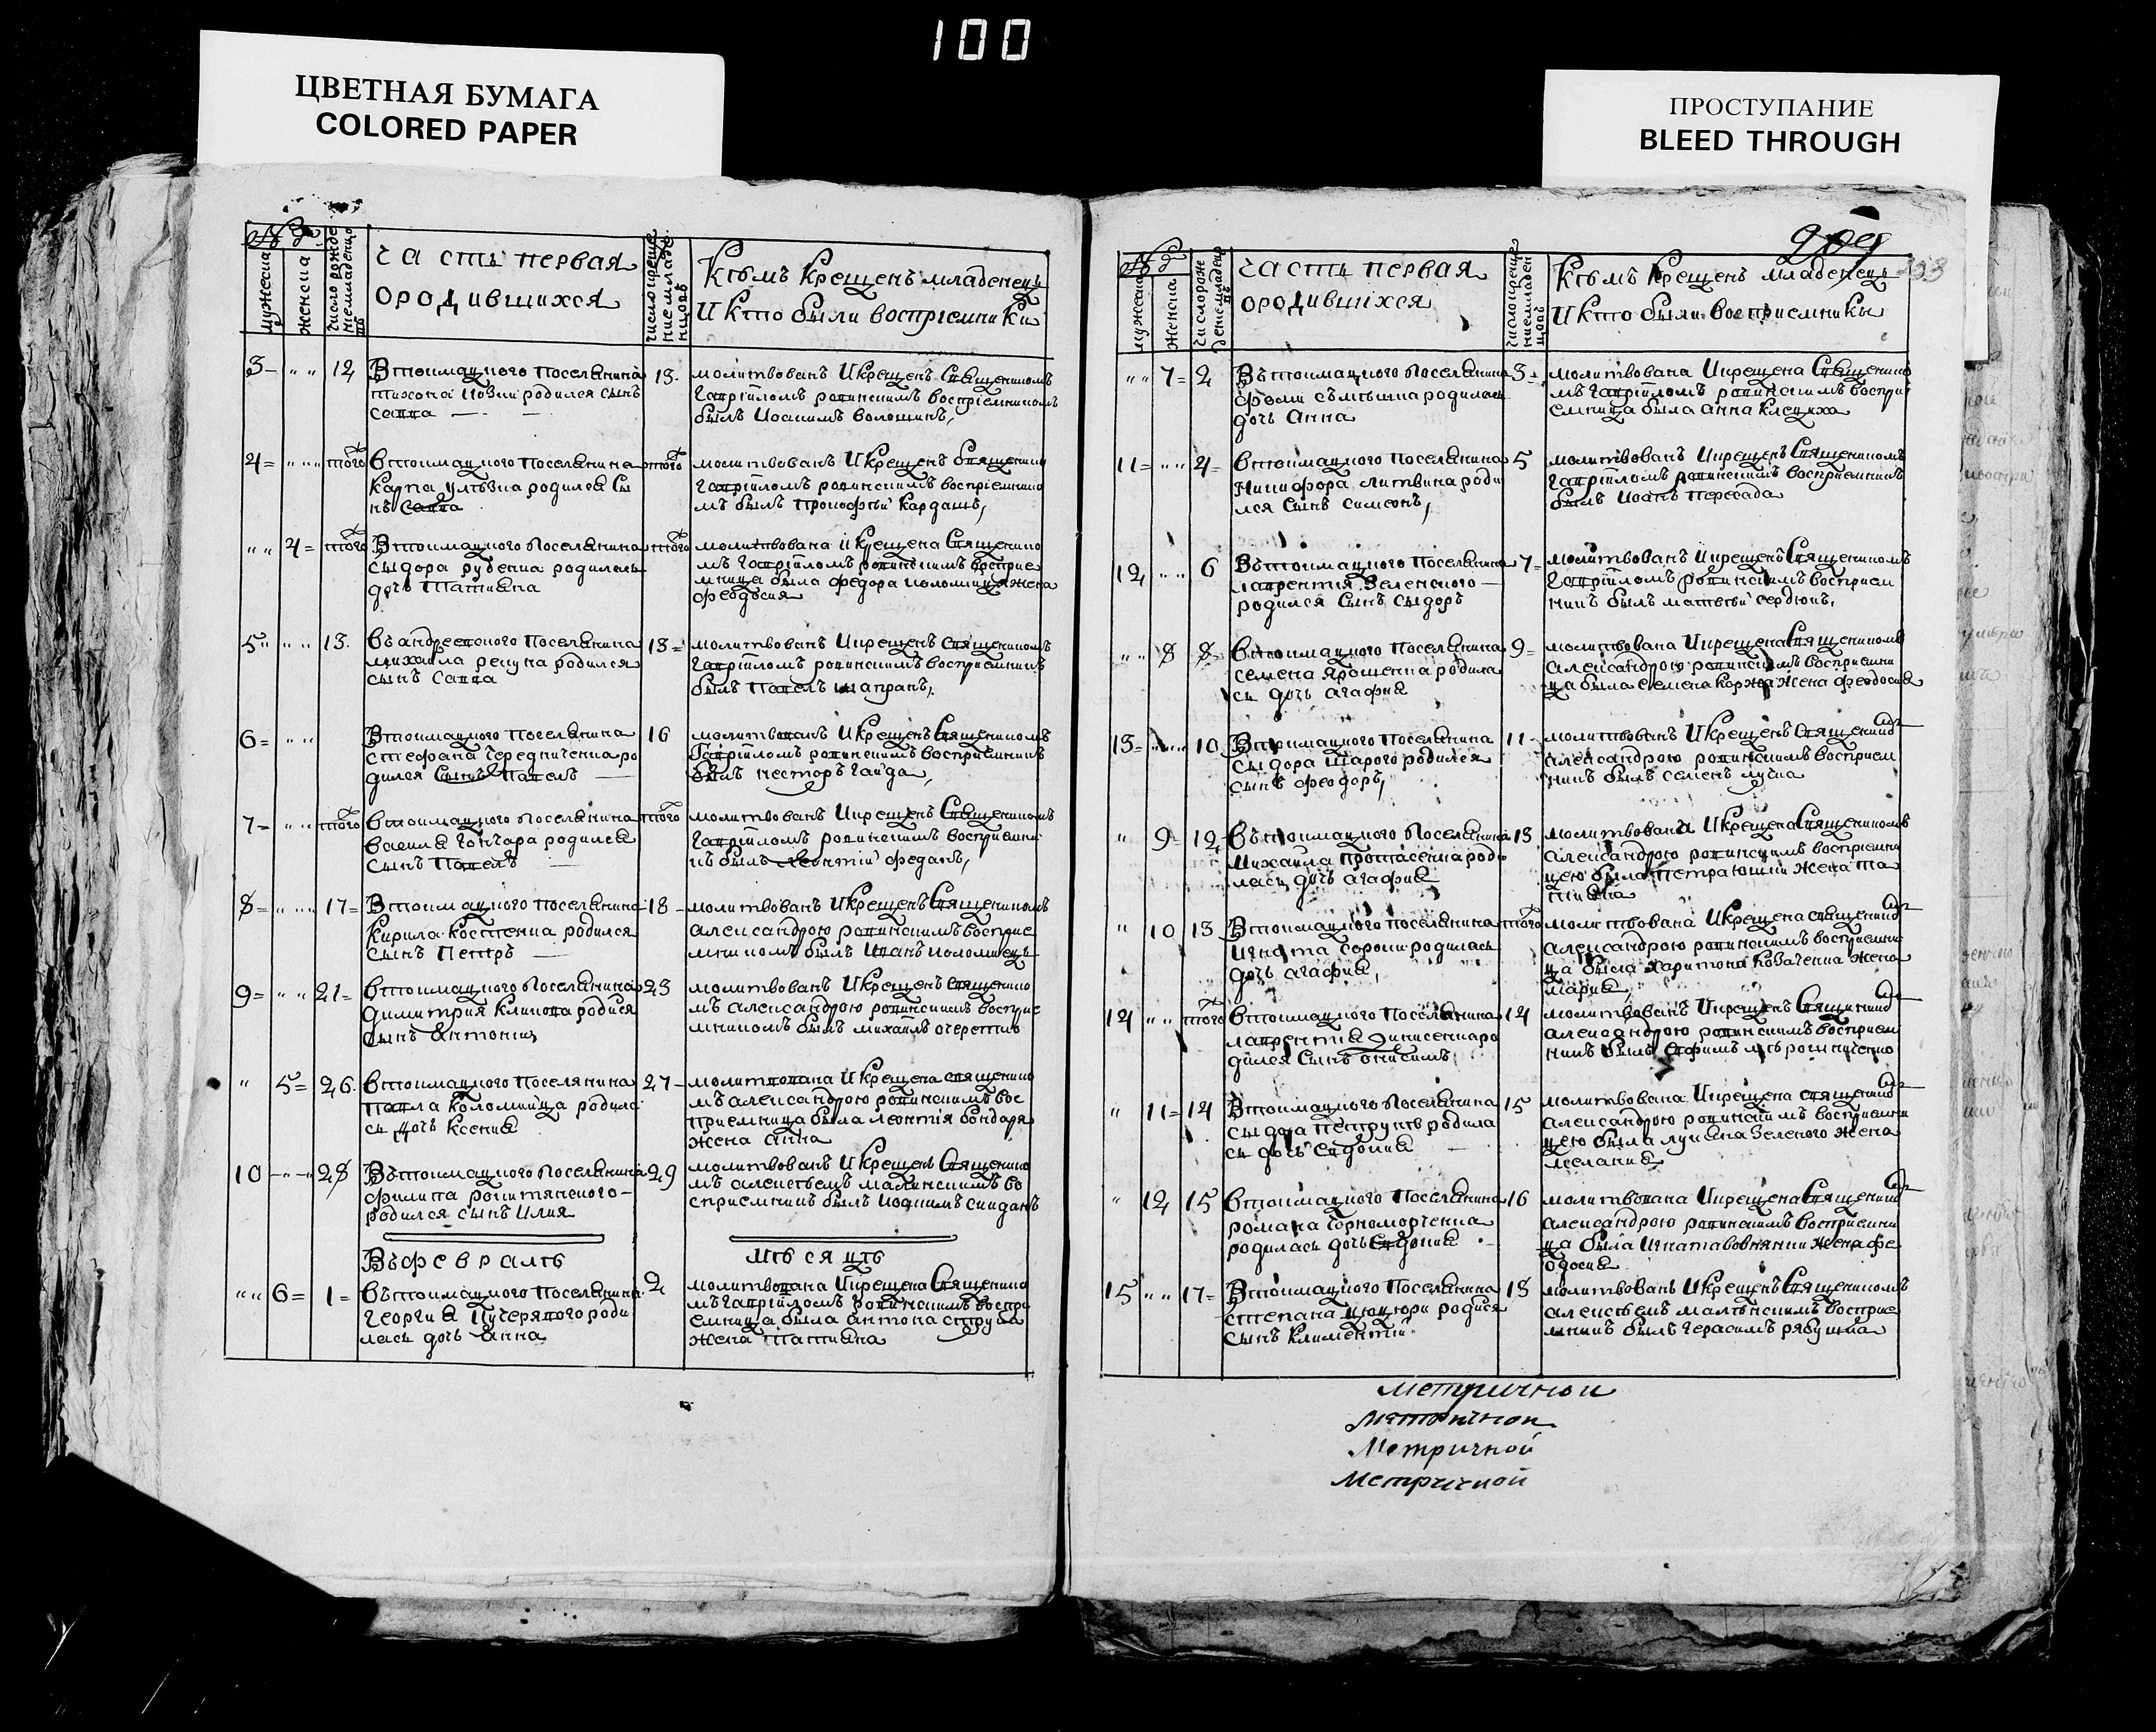 100
ЦВЕТНАЯ БУМАГА
COLORED PAPER
ПРОСТУПАНИЕ
BLEED THROUGH
мужеска
женска
число рожде
ния младенцо
въ
часть первая
ородившихся
число креще
ние младе
нцовъ
Кѣмъ крещенъ младенецъ
и кто были восприемники
3 12 Втокмацкого поселянина
родился сынъ
савва
13. молитвованъ и крещенъ священикомъ
гаврііломъ ровинскимъ восприемникомъ
былъ иоакимъ волошинъ
4 того втокмацкого поселянина
карпа родился сы
нъ савва
того молитвованъ и крещенъ священико
гаврііломъ ровинскимъ восприемнико
мъ былъ прокофтй кардашъ
4 того Втокмацкого поселянина
сыдора руденка родилась
дочь татияна
того молитвована и крещена священико
мъ гаврііломъ ровинскимъ восприе
мница была федора коломийца жена
феодосия
5 13. въ андреевского поселянина
михаила репуна родился
сынъ савва
13 молитвованъ и крещенъ священикомъ
гаврііломъ ровинскимъ восприемникъ
былъ павелъ шапранъ
6 Втокмацкого поселянина
стефана чередниченка ро
дился сынъ павелъ
16 молитвованъ и крещенъ священикомъ
гаврііломъ ровинскимъ восприемникъ
былъ несторъ гайда
7 того втокмацкого поселянина
василя гончара родился
сынъ павелъ
того молитвованъ и крещенъ священикомъ
гаврііломъ ровинскимъ восприемни
къ былъ леонтій феданъ
8 17 Втокмацкого поселянина
кирила костенка родился
сынъ петръ
18 молитвованъ и крещенъ священикомъ
александрою ровинскимъ восприе
мникомъ былъ иванъ коломиецъ
9 21 втокмацкого поселянина
димитрия климова родися
сынъ антоній
23 молитвованъ и крещенъ священико
мъ александрою ровинскимъ восприе
мникомъ былъ михаилъ очеретко
5 26. втокмацкого поселянина
павла коломийца родила
сь дочь ксения
27 молитвована и крещена священико
мъ александрою ровинскимъ вос
приемница была леонтія бондаря
жена анна
10 28 Вътокмацкого поселянина
филипа ракитянского
родился сынъ илия
29 молитвованъ и крещенъ священико
мъ алексѣемъ малинскимъ во
сприемникъ былъ иоакимъ скиданъ
Въфевралѣ
мѣсяцѣ
6 1 вътокмацкого поселянина
георгия кучерявого роди
лась дочь анна
2 молитвована и крещена священико
мъ гаврііломъ ровинскимъ воспри
емница была антона струка
жена татияна
209
мужеска
женска
число рож
часть первая
ородившихся
число креще
Кѣмъ крещенъ младенецъ
и кто были восприемники
7 2 Вътокмацкого поселянина
фоми родилась
дочь анна
3 молитвована и крещена священико
мъ гаврііломъ ровинскимъ воспри
емница была анна клецкха
11 4 втокмацкого поселянина
никифора литвина роди
лся сынъ симеонъ
5 молитвованъ и крещенъ священикомъ
гаврііломъ ровинскимъ восприемникъ
былъ иоанъ пересада
12 6 Вътокмацкого поселянина
лаврентія зеленского
родился сынъ сыдоръ
7 молитвованъ и крещенъ священикомъ
гаврііломъ ровинскимъ восприем
никъ былъ матвѣй сердюкъ
8 8 втокмацкого поселянина
семена ярошенка родила
сь дочь агафия
9 молитвована и крещена священикомъ
александрою ровинскимъ восприемни
ца была семена коржа жена феодосия
13 10 Втокмацкого поселянина
сыдора шарого родился
сынъ феодоръ
11 молитвованъ и крещенъ священико
александрою ровинскимъ восприем
никъ былъ семенъ лучка
9 12 вътокмацкого поселянина
михаила протасенка роди
лась дочь агафия
13 молитвована и крещена священикомъ
александрою ровинскимъ восприемни
цею была петра жена та
тияна
10 13 Втокмацкого поселянина
игната сороки родилась
дочь агафия
того молитвована и крещена священико
александрою ровинскимъ восприемни
ца была харитона козаченка жена
мария
14 того втокмацкого поселянина
лаврентия денисенка ро
дился сынъ онисимъ
14 молитвованъ и крещенъ священико
александрою ровинскимъ восприем
никъ былъ
11 14 Втокмацкого поселянина
сыдора родила
сь дочь евдокия
15 молитвована и крещена священико
александрою ровинскимъ восприемни
цею была лукяна зеленого жена
мелания
12 15 втокмацкого поселянина
романа чорноморченка
родилась дочь евдокия
16 молитвована и крещена священико
александрою ровинскимъ восприемни
ца была игната жена фе
одосия
15 17 Втокмацкого поселянина
степана цюцюри родися
сынъ климентій
18 молитвованъ и крещенъ священикомъ
алексѣемъ малѣнскимъ восприе
мникъ былъ герасимъ рябушка
метричнои
метричнои
Метричной
Метричной